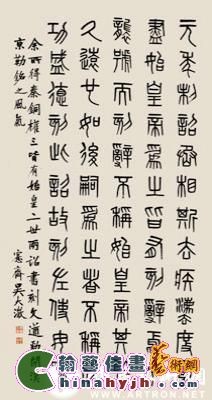 元年制詔丞相斯去疾灋度
盡始皇帝為之皆有刻辭焉
襲號而刻辭不稱始皇帝其
久遠也如後嗣為之者不稱
功盛德刻此詔故刻左使毋
余所得秦銅權三皆有始皇二世兩詔書刻文遒勁開漢
京勒銘之風氣
愙齋吳大澂
翰藝佳畫藝術網
hanyijiahua.com
WWW.ARTRON.NET